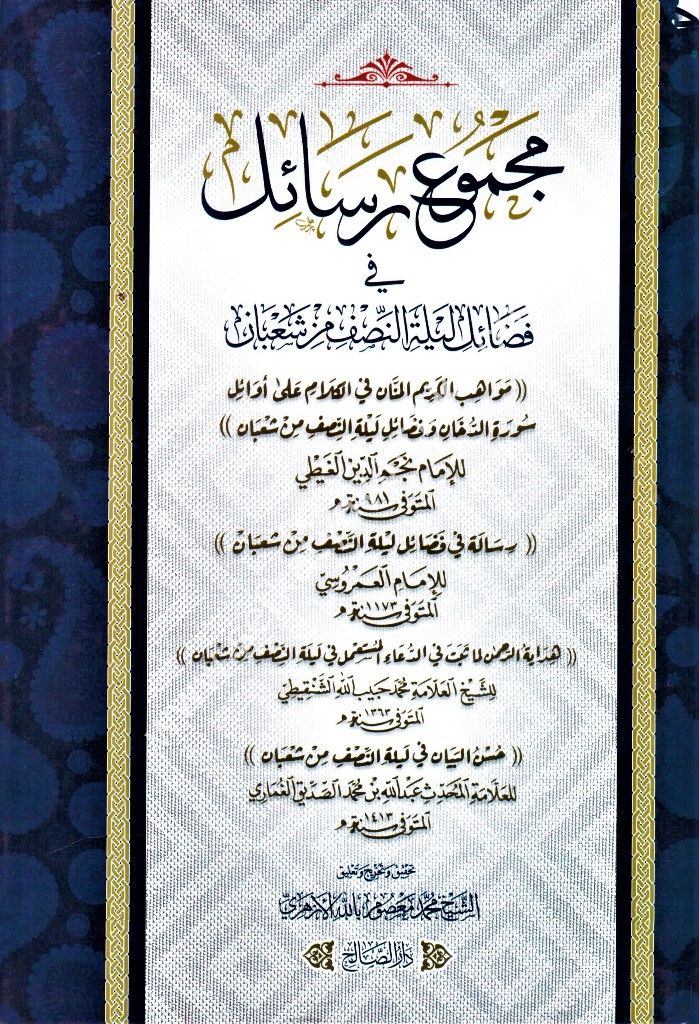 مجموع رسائل
في
فضائل ليلة النصف من شعبان
(( مواهب الكريم المنان في الكلام على أوائل
سورة الدخان وفضائل ليلة النصف من شعبان ))
للإمام نجم الدين الغيطي
المتوفى سنة ٩٨١ هـ
(( رسالة في فضائل ليلة النصف من شعبان ))
للإمام العمروسي
المتوفى سنة ١١٧٣ هـ
(( هداية الرحمن لما ثبت في الدعاء المستعمل في ليلة النصف من شعبان ))
للشيخ العلامة محمد حبيب الله الشنقيطي
المتوفى سنة ١٣٦٣ هـ
(( حسن البيان في ليلة النصف من شعبان ))
للعلامة المحدث عبد الله بن محمد الصديق الغماري
المتوفى سنة ١٤١٣ هـ
تحقيق وتخريج وتعليق
الشيخ محمد معصوم بالله الأزهري
دار الصالح